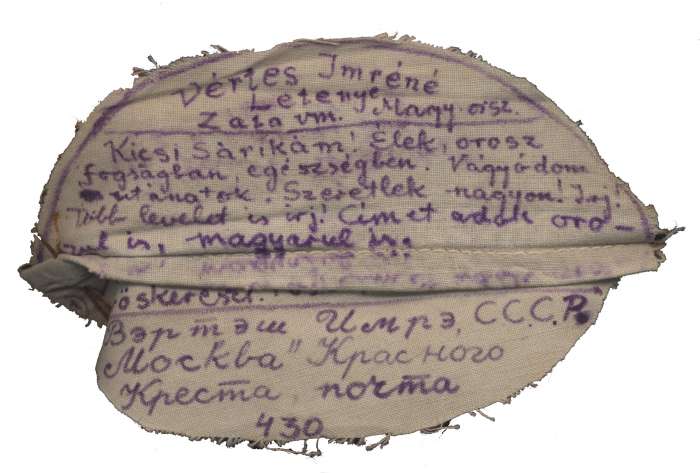 Vértes Imréné
Letenye
Zala vm. Magy. orsz.
Kicsi Sárikám! Élek, orosz
fogságban, egészségben. Vágyódom
utánatok. Szeretlek nagyon! Irj!
Több levelet is irj. Címet adok oro-
szul is, magyarul is.
öskereszt.
Вэртэш Имрэ, С.С.С.Р.
Москва" Красного
Креста, почта
430